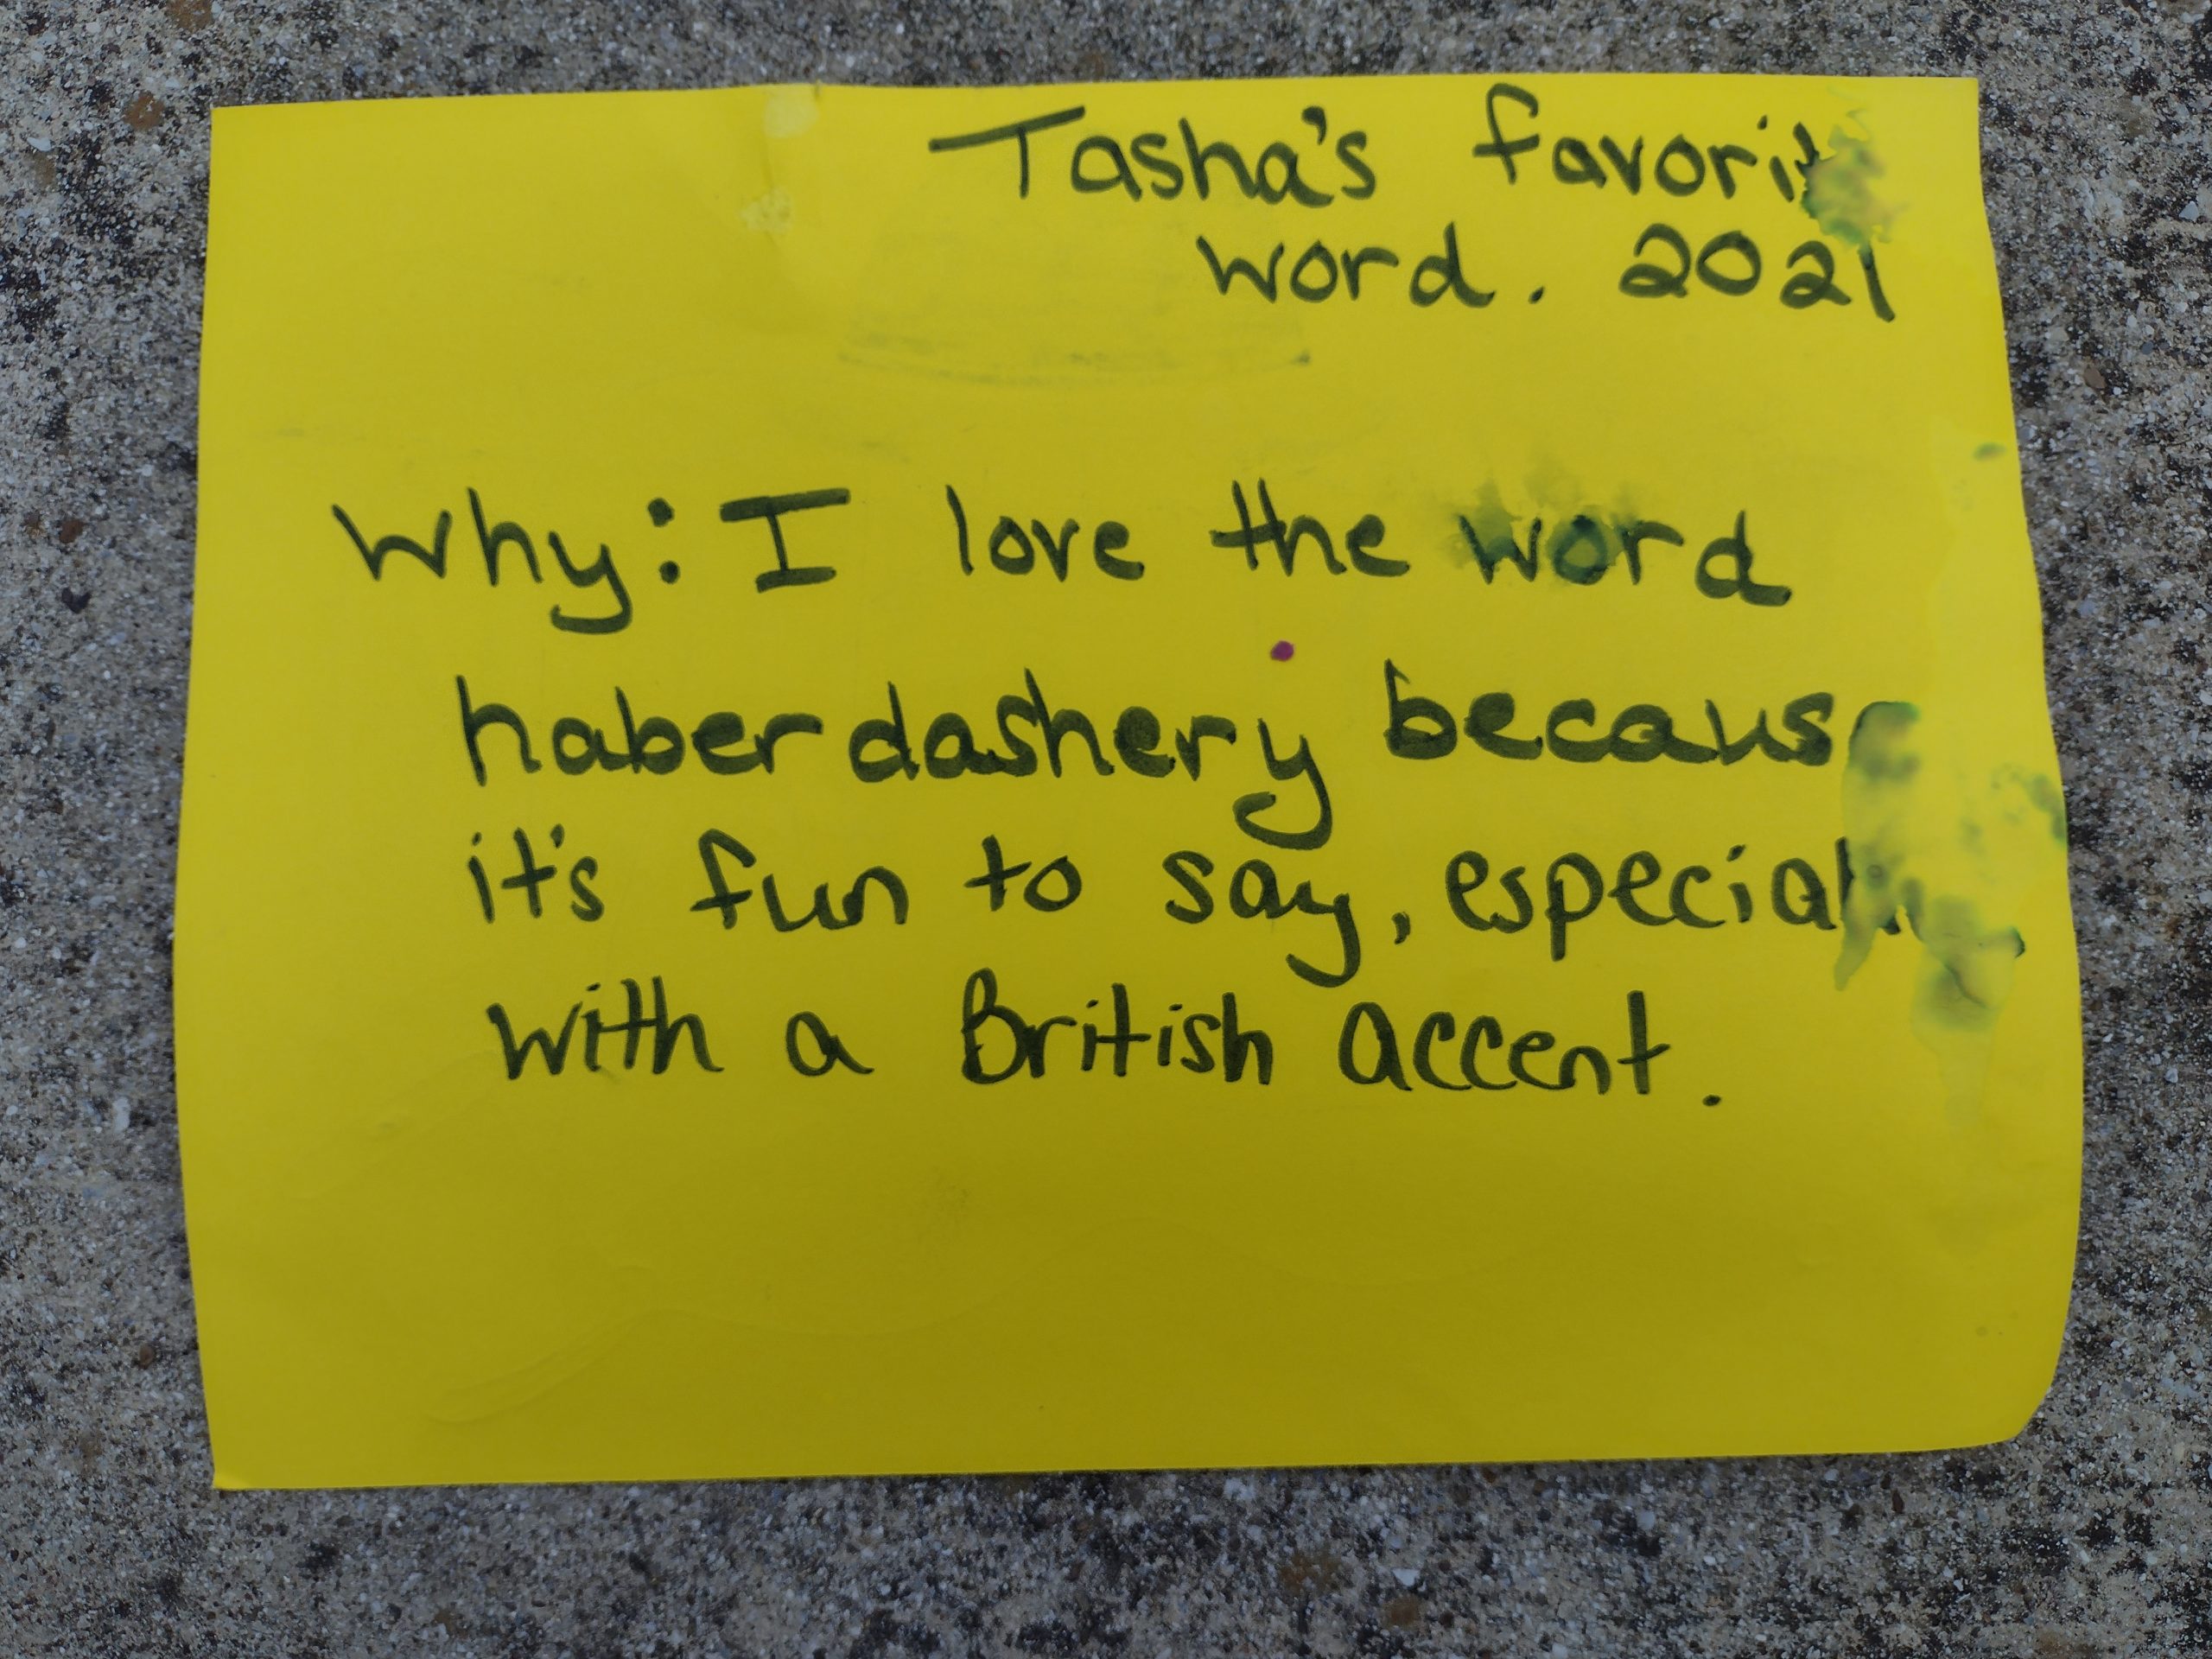 Tasha's favorit
word. 2021
Why: I love the word
haberdashery becaus
it's fun to say, especial
with a British accent.